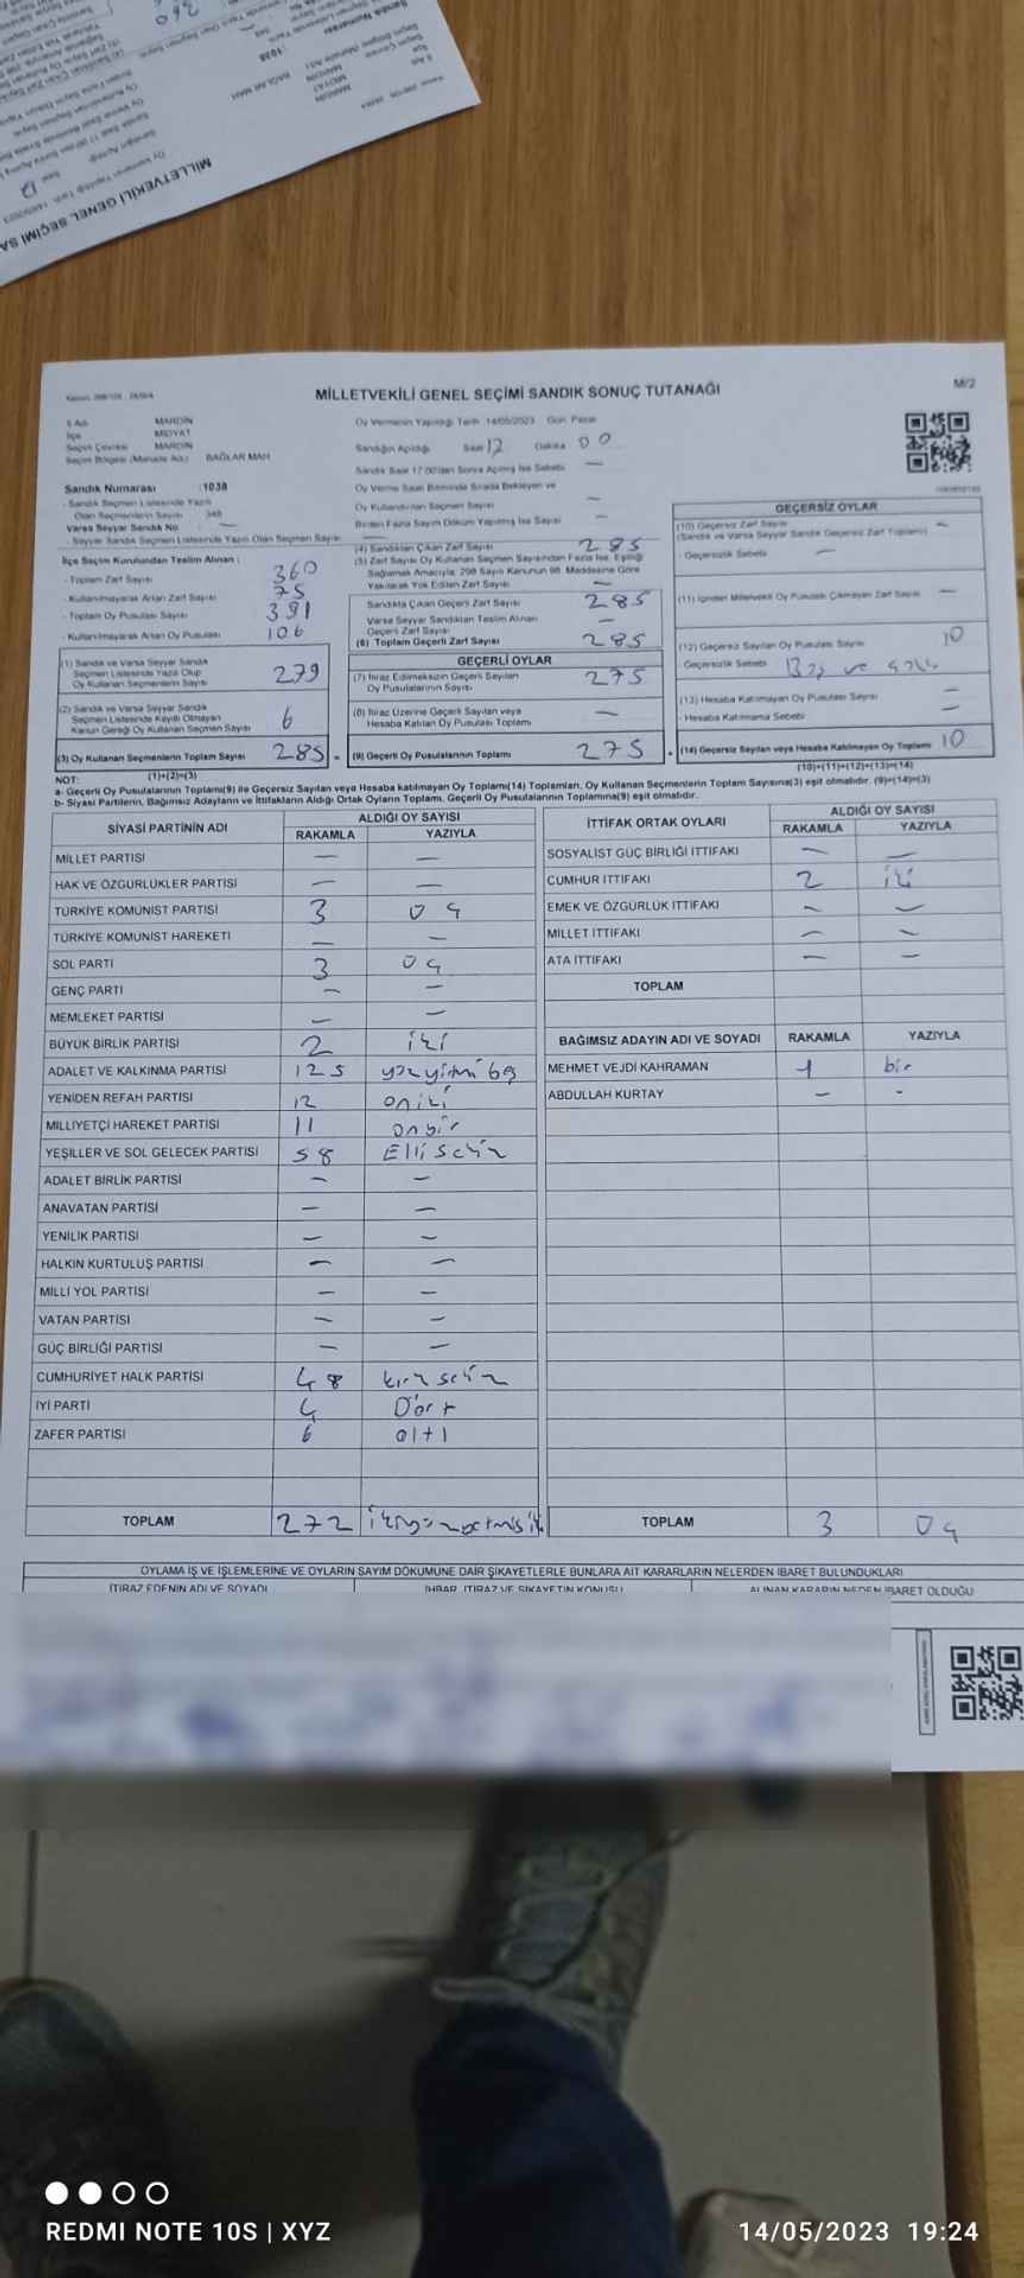 MİLLETVEKİLİ GENEL SEÇİMİ SA
MİLLETVEKİLİ GENEL SEÇİMİ SANDIK SONUÇ TUTANAĞI
M/2
İl Adı MARDİN
İlçe MİDYAT
Seçim Çevresi MARDİN
Seçim Bölgesi (Mahalle Adı) BAĞLAR MAH
Oy Vermenin Yapıldığı Tarih 14/05/2023 Gün Pazar
Sandığın Açıldığı Saat 12 Dakika 00
Sandık Saat 17.00'dan Sonra Açılmış İse Sebebi —
Oy Verme Saati Bitiminde Sırada Bekleyen ve
Oy Kullandırılan Seçmen Sayısı —
Birden Fazla Sayım Döküm Yapılmış İse Sayısı —
Sandık Numarası :1038
- Sandık Seçmen Listesinde Yazılı
Olan Seçmenlerin Sayısı 348
Varsa Seyyar Sandık No —
- Seyyar Sandık Seçmen Listesinde Yazılı Olan Seçmen Sayısı —
İlçe Seçim Kurulundan Teslim Alınan :
- Toplam Zarf Sayısı 360
- Kullanılmayarak Artan Zarf Sayısı 75
- Toplam Oy Pusulası Sayısı 391
- Kullanılmayarak Artan Oy Pusulası 106
(1) Sandık ve Varsa Seyyar Sandık
Seçmen Listesinde Yazılı Olup
Oy Kullanan Seçmenlerin Sayısı 279
(2) Sandık ve Varsa Seyyar Sandık
Seçmen Listesinde Kayıtlı Olmayan
Kanun Gereği Oy Kullanan Seçmen Sayısı 6
(3) Oy Kullanan Seçmenlerin Toplam Sayısı 285
(1)+(2)=(3)
(4) Sandıktan Çıkan Zarf Sayısı 285
(5) Zarf Sayısı Oy Kullanan Seçmen Sayısından Fazla İse, Eşitliği
Sağlamak Amacıyla, 298 Sayılı Kanunun 98. Maddesine Göre
Yakılarak Yok Edilen Zarf Sayısı —
Sandıkta Çıkan Geçerli Zarf Sayısı 285
Varsa Seyyar Sandıktan Teslim Alınan
Geçerli Zarf Sayısı —
(6) Toplam Geçerli Zarf Sayısı 285
GEÇERLİ OYLAR
(7) İtiraz Edilmeksizin Geçerli Sayılan
Oy Pusulalarının Sayısı 275
(8) İtiraz Üzerine Geçerli Sayılan veya
Hesaba Katılan Oy Pusulası Toplamı —
(9) Geçerli Oy Pusulalarının Toplamı 275
GEÇERSİZ OYLAR
(10) Geçersiz Zarf Sayısı —
(Sandık ve Varsa Seyyar Sandık Geçersiz Zarf Toplamı)
- Geçersizlik Sebebi —
(11) İçinden Milletvekili Oy Pusulası Çıkmayan Zarf Sayısı —
(12) Geçersiz Sayılan Oy Pusulası Sayısı 10
Geçersizlik Sebebi
(13) Hesaba Katılmayan Oy Pusulası Sayısı —
- Hesaba Katılmama Sebebi —
(14) Geçersiz Sayılan veya Hesaba Katılmayan Oy Toplamı 10
(10)+(11)+(12)+(13)=(14)
NOT:
a- Geçerli Oy Pusulalarının Toplamı(9) ile Geçersiz Sayılan veya Hesaba katılmayan Oy Toplamı(14) Toplamları, Oy Kullanan Seçmenlerin Toplam Sayısına(3) eşit olmalıdır. (9)+(14)=(3)
b- Siyasi Partilerin, Bağımsız Adayların ve İttifakların Aldığı Ortak Oyların Toplamı, Geçerli Oy Pusulalarının Toplamına(9) eşit olmalıdır.
SİYASİ PARTİNİN ADI ALDIĞI OY SAYISI
RAKAMLA YAZIYLA
MİLLET PARTİSİ — —
HAK VE ÖZGÜRLÜKLER PARTİSİ — —
TÜRKİYE KOMÜNİST PARTİSİ 3 üç
TÜRKİYE KOMÜNİST HAREKETİ — —
SOL PARTİ 3 üç
GENÇ PARTİ — —
MEMLEKET PARTİSİ — —
BÜYÜK BİRLİK PARTİSİ 2 iki
ADALET VE KALKINMA PARTİSİ 125 yüzyirmi beş
YENİDEN REFAH PARTİSİ 12 oniki
MİLLİYETÇİ HAREKET PARTİSİ 11 onbir
YEŞİLLER VE SOL GELECEK PARTİSİ 58 Elli sekiz
ADALET BİRLİK PARTİSİ — —
ANAVATAN PARTİSİ — —
YENİLİK PARTİSİ — —
HALKIN KURTULUŞ PARTİSİ — —
MİLLİ YOL PARTİSİ — —
VATAN PARTİSİ — —
GÜÇ BİRLİĞİ PARTİSİ — —
CUMHURİYET HALK PARTİSİ 48 kırk sekiz
İYİ PARTİ 4 Dört
ZAFER PARTİSİ 6 altı
TOPLAM 272 ikiyüzyetmişik
İTTİFAK ORTAK OYLARI ALDIĞI OY SAYISI
RAKAMLA YAZIYLA
SOSYALİST GÜÇ BİRLİĞİ İTTİFAKI — —
CUMHUR İTTİFAKI 2 iki
EMEK VE ÖZGÜRLÜK İTTİFAKI — —
MİLLET İTTİFAKI — —
ATA İTTİFAKI — —
TOPLAM
BAĞIMSIZ ADAYIN ADI VE SOYADI RAKAMLA YAZIYLA
MEHMET VEJDİ KAHRAMAN 1 bir
ABDULLAH KURTAY — -
TOPLAM 3 üç
OYLAMA İŞ VE İŞLEMLERİNE VE OYLARIN SAYIM DÖKÜMÜNE DAİR ŞİKAYETLERLE BUNLARA AİT KARARLARIN NELERDEN İBARET BULUNDUKLARI
İTİRAZ EDENİN ADI VE SOYADI İHBAR, İTİRAZ VE ŞİKAYETİN KONUSU ALINAN KARARIN NEDEN İBARET OLDUĞU
REDMI NOTE 10S | XYZ
14/05/2023 19:24